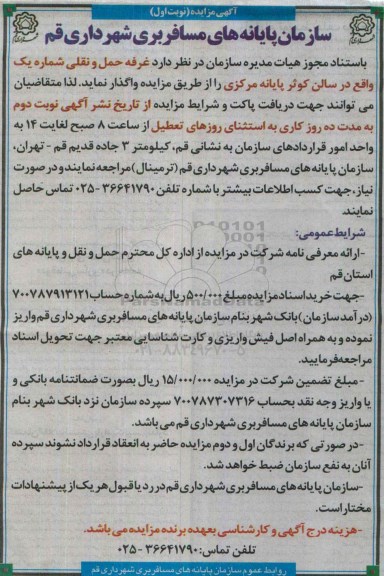 آگهی مزایده (نوبت اول)
سازمان پایانه های مسافربری شهرداری قم
باستناد مجوز هیات مدیره سازمان در نظر دارد غرفه حمل و نقلی شماره یک
واقع در سالن کوثر پایانه مرکزی را از طریق مزایده واگذار نماید. لذا متقاضیان
می توانند جهت دریافت پاکت و شرایط مزایده از تاریخ نشر آگهی نوبت دوم
به مدت ده روز کاری به استثنای روزهای تعطیل از ساعت ۸ صبح لغایت ۱۴ به
واحد امور قراردادهای سازمان به نشانی قم، کیلومتر ۳ جاده قدیم قم - تهران،
سازمان پایانه های مسافربری شهرداری قم (ترمینال) مراجعه نمایند و در صورت
نیاز، جهت کسب اطلاعات بیشتر با شماره تلفن ۳۶۶۴۱۷۹۰-۰۲۵ تماس حاصل
نمایند.
شرایط عمومی:
-ارائه معرفی نامه شرکت در مزایده از اداره کل محترم حمل و نقل و پایانه های
استان قم
-جهت خرید اسناد مزایده مبلغ ۵۰۰/۰۰۰ ریال به شماره حساب ۷۰۰۷۸۷۹۱۳۱۲۱
(درآمد سازمان) بانک شهر بنام سازمان پایانه های مسافربری شهرداری قم واریز
نموده و به همراه اصل فیش واریزی و کارت شناسایی معتبر جهت تحویل اسناد
مراجعه فرمایید.
-مبلغ تضمین شرکت در مزایده ۱۵/۰۰۰/۰۰۰ ریال بصورت ضمانتنامه بانکی و
یا واریز وجه نقد بحساب ۷۰۰۷۸۷۳۰۷۳۱۶ سپرده سازمان نزد بانک شهر بنام
سازمان پایانه های مسافربری شهرداری قم می باشد.
-در صورتی که برندگان اول و دوم مزایده حاضر به انعقاد قرارداد نشوند سپرده
آنان به نفع سازمان ضبط خواهد شد.
-سازمان پایانه های مسافربری شهرداری قم در رد یا قبول هر یک از پیشنهادات
مختار است.
-هزینه درج آگهی و کارشناسی بعهده برنده مزایده می باشد.
تلفن تماس: ۳۶۶۴۱۷۹۰-۰۲۵
روابط عمومی سازمان پایانه های مسافربری شهرداری قم